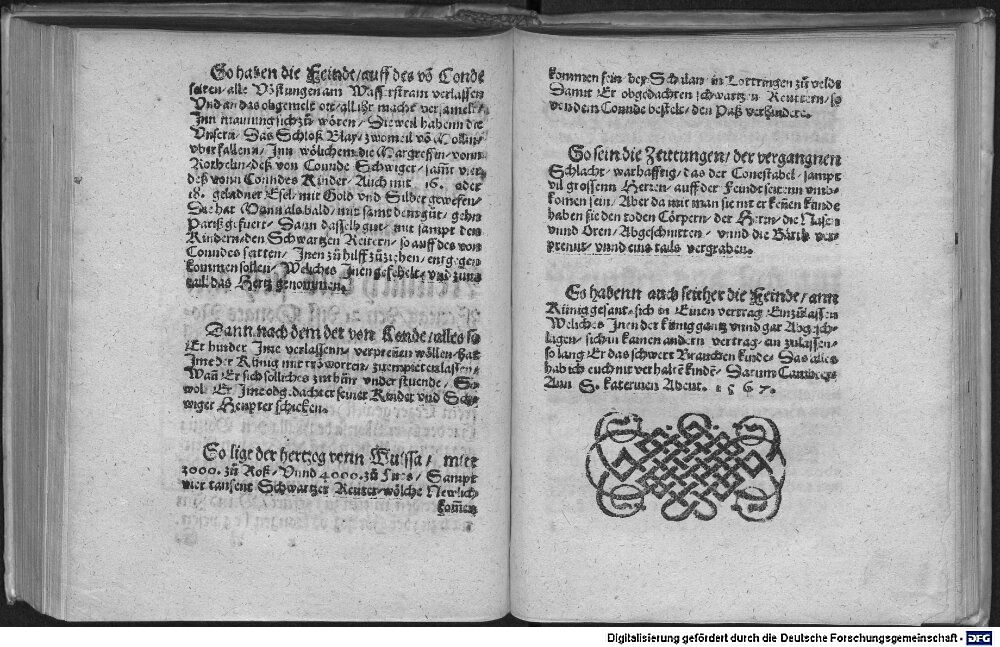 So haben die Feinde/auff des vō Conde
seiten/alle Vöstungen am Wasserstram verlassen
Vnd an das obgemelt ort/all ihr macht versamelt/
Inn mainung sich zů wören/Die weil habenn die
Vnsern/Das Schloß Blay/
vberfallenn/Inn wölichem die Margreffin/vonn
Rothelin/deß von Connde Schwiger/sampt vier
deß vonn Conndes Kinder/Auch mit 16. oder
18. geladner Esel/mit Gold vnd Silber gewesen/
Die hat Mann als bald/mit samt dem gůt/gehn
Pariß gefuert/Dann dasselb gut/mit sampt den
Kindern/den Schwartzen Reitern/so auff des von
Conndes seitten/Inen zů hilff zůziehen/entgegen
kommen sollen/Welches Inen gefehelt/vnd zum
tail das Hertz genommen.
Dann nach dem der von Conde/alles so
Er hinder Ime verlassenn/verprenen wöllen/hat
Ime der Künig mit tröworten/zuempieten lassen/
Wañ Er sich solliches zuthůn vnderstuende/So
wol Er Ime obgedachter seiner Kinder vnd Schwiger
Heupter schicken.
So lige der hertzog vonn /mitt
3000. zů Roß/Vnnd 4000. zů Fues/Sampt
vier tausent Schwartzer Reuter/wölche Newlich
kom̄en
kommen sein/der Schilan/in Lottringen zů velde
Damit Er obgedachten schwartzen Reuttern/so
von dem Connde bestelt/den Paß verhindere.
So sein die Zeittungen/der vergangnen
Schlacht/warhafftig/das der Conestabel/sampt
vil grossenn Herren/auff der Feindt seitenn vmbkomen
sein/Aber da mit man sie nit erkeñen kůnde
haben sie den toden Cörpern/der Hern/die Nasen
vnnd Oren/Abgeschnitten/vnnd die Bärth verprennt/
vnnd eins tails vergraben.
Es habenn auch seither die Feinde/ann
Künig gesant/sich in Einen vertrag Einzůlassen
Welches Inen der künig gantz vnnd gar Abgeschlagen/
sich in kainen andern vertrag/ein zulassen/
so lang Er das schwert Brauchen kinde/Das alles
hab ich euch nit verhalte kinde. Datum
Am S. katerinen Abent. 1567.
Digitalisierung gefördert durch die Deutsche Forschungsgemeinschaft - DFG